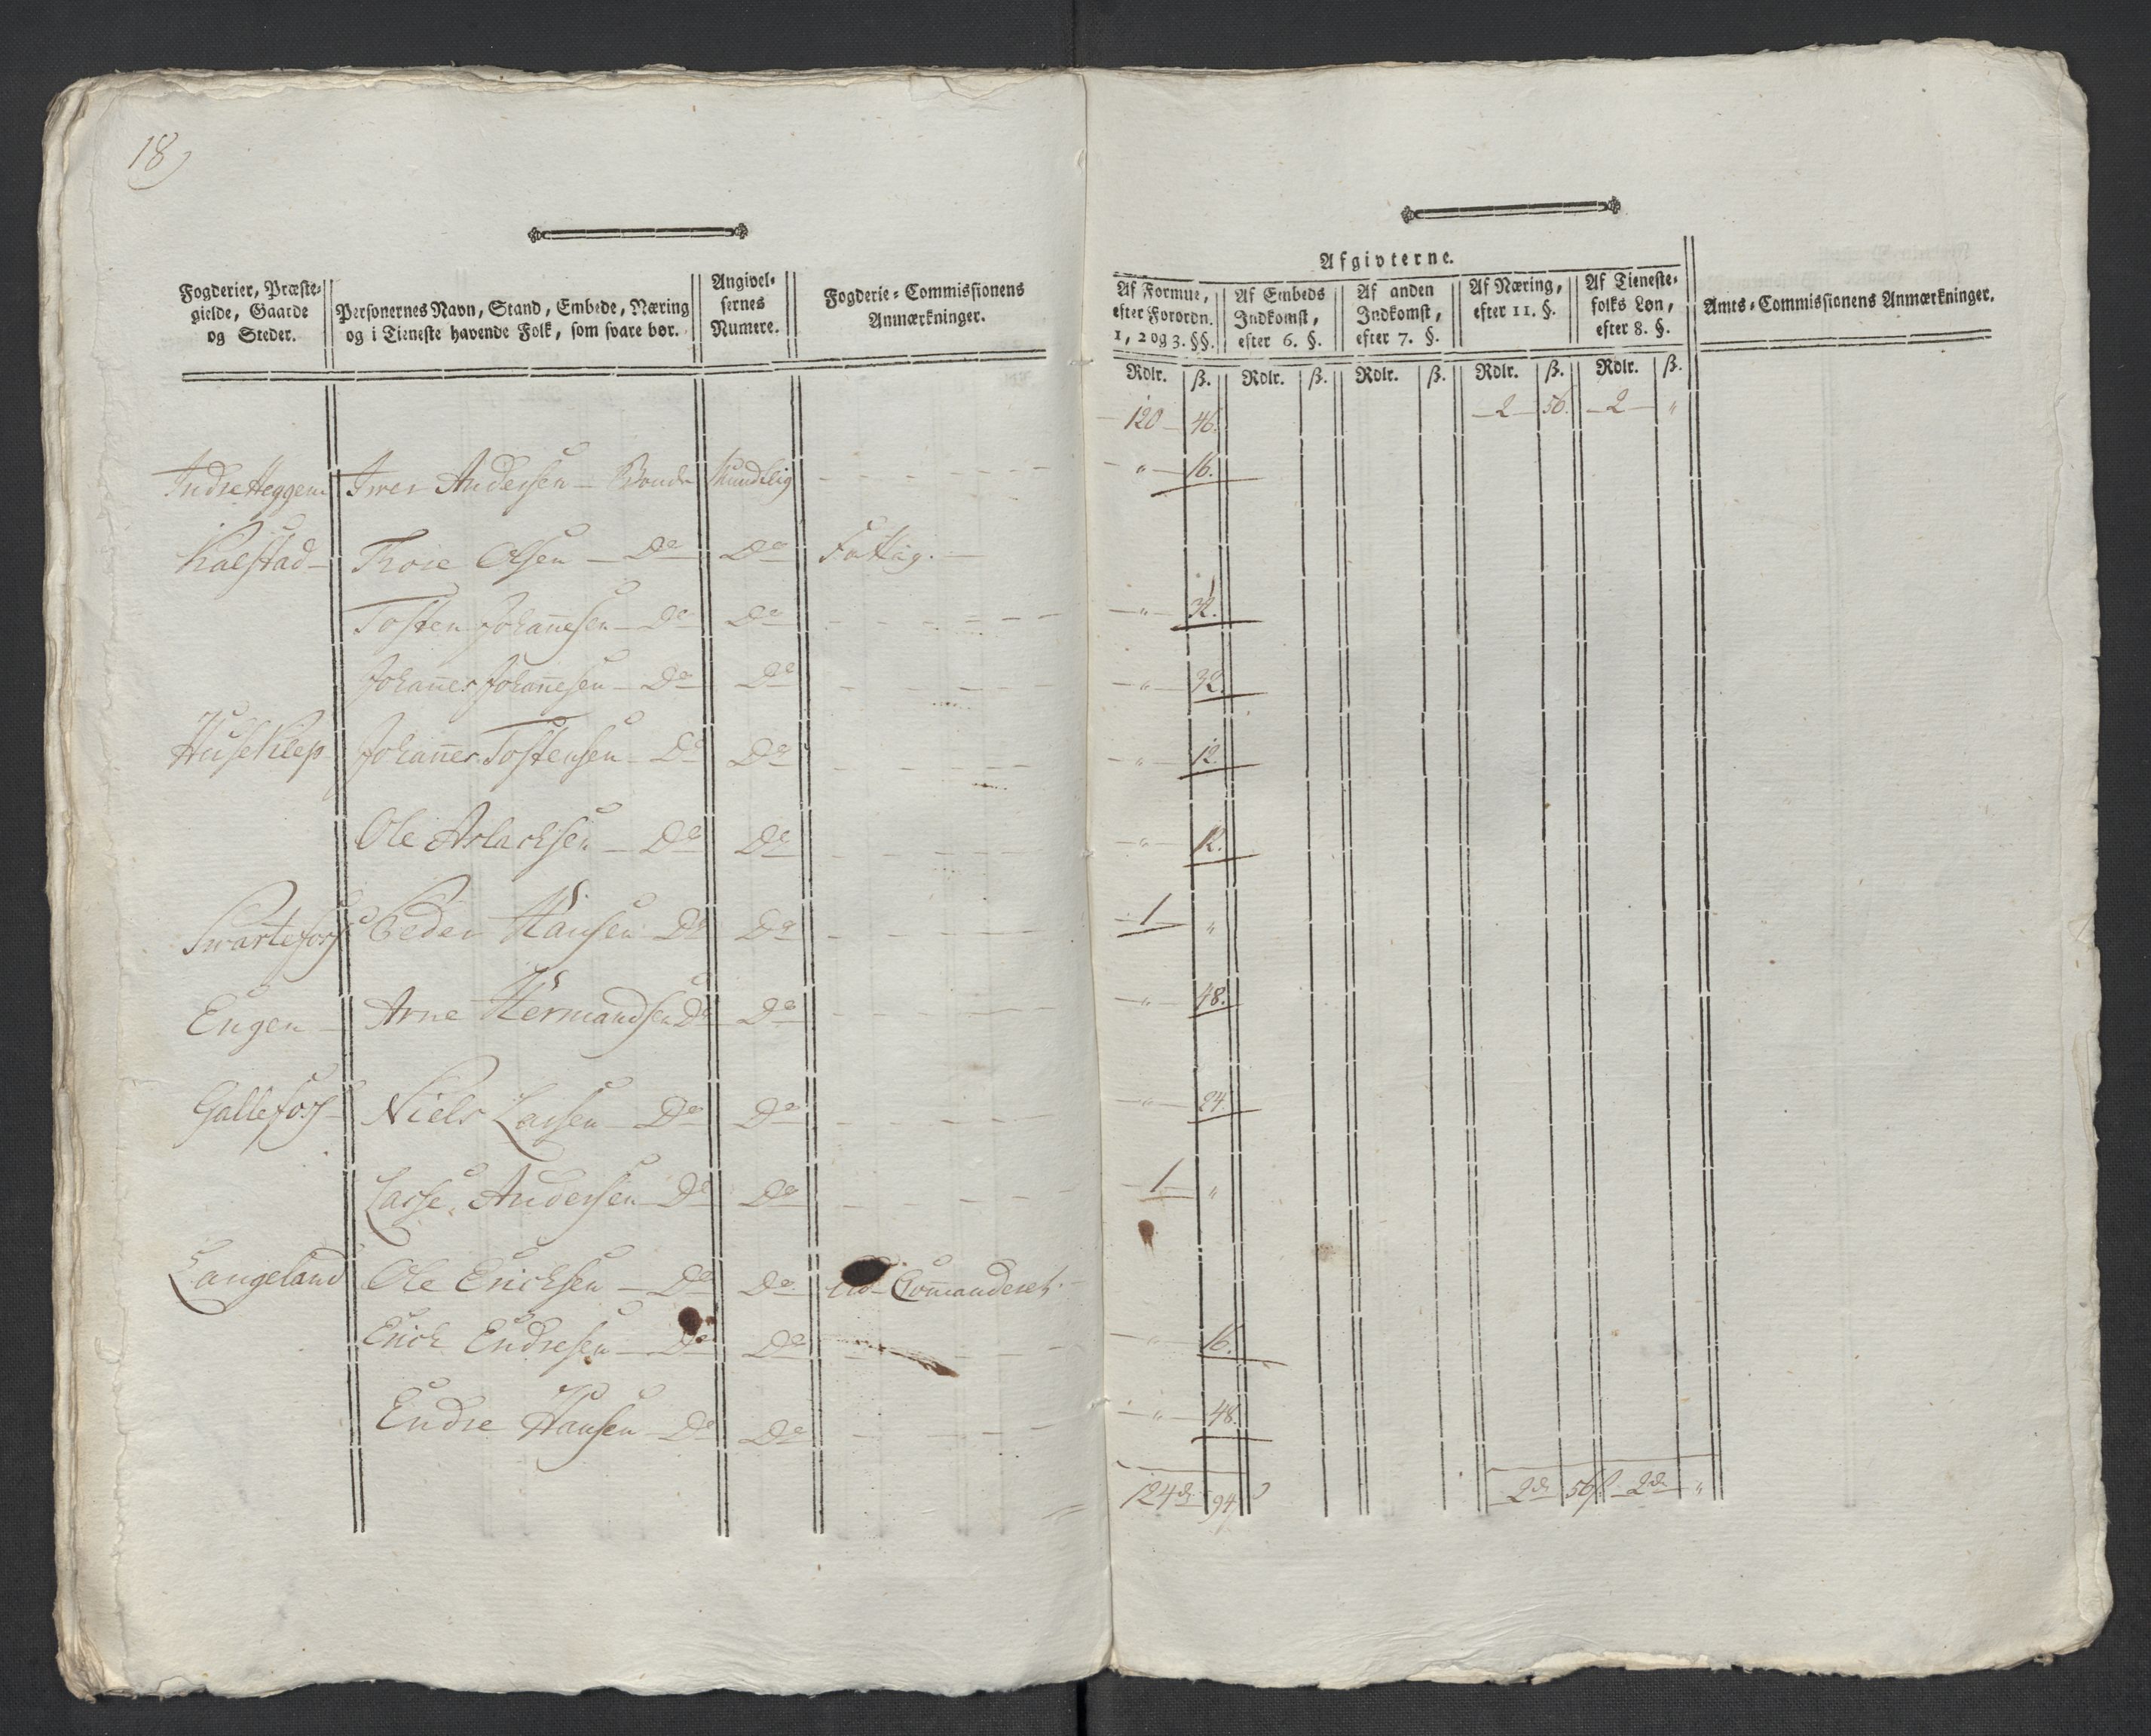 18)
Afgivterne.
Fogderier, Præste-gielde, Gaarde og Steder. Personernes Navn, Stand, Embede, Næring og i Tieneste havende Folk, som svare bør. Angivel-sernes Numere. Fogderie-Commissionens Anmærkninger. Af Formue, efter Forordn. 1, 2 og 3. §§. Af Embeds Indkomst, efter 6. §. Af anden Indkomst, efter 7. §. Af Næring, efter 11. §. Af Tieneste-folks Løn, efter 8. §. Amts-Commissionens Anmærkninger.
Rdlr. ß. Rdlr. ß. Rdlr. ß. Rdlr. ß. Rdlr. ß.
120 46. 2 56. 2 "
Indre Heggen Iver Andersen - Bonde Mundtlig " 16.
Kalstad - Thore Olsen - Do Do Fattig.
Tosten Johannesen - Do Do " 32.
Johannes Johannesen - Do Do " 32.
Huseklep Johannes Tostensen - Do Do " 12.
Ole Aslachsen - Do Do " 12.
Svartefoss Peder Hansen Do Do 1 "
Engen - Arne Hermandsen Do Do " 48.
Gallefoss - Niels Larsen - Do Do " 24.
Lasse Andersen - Do Do 1 "
Langeland Ole Erichsen - Do Do Commanderet.
Erich Endresen - Do Do " 16.
Endre Hansen - Do Do " 48.
124 94 2 56 2 "